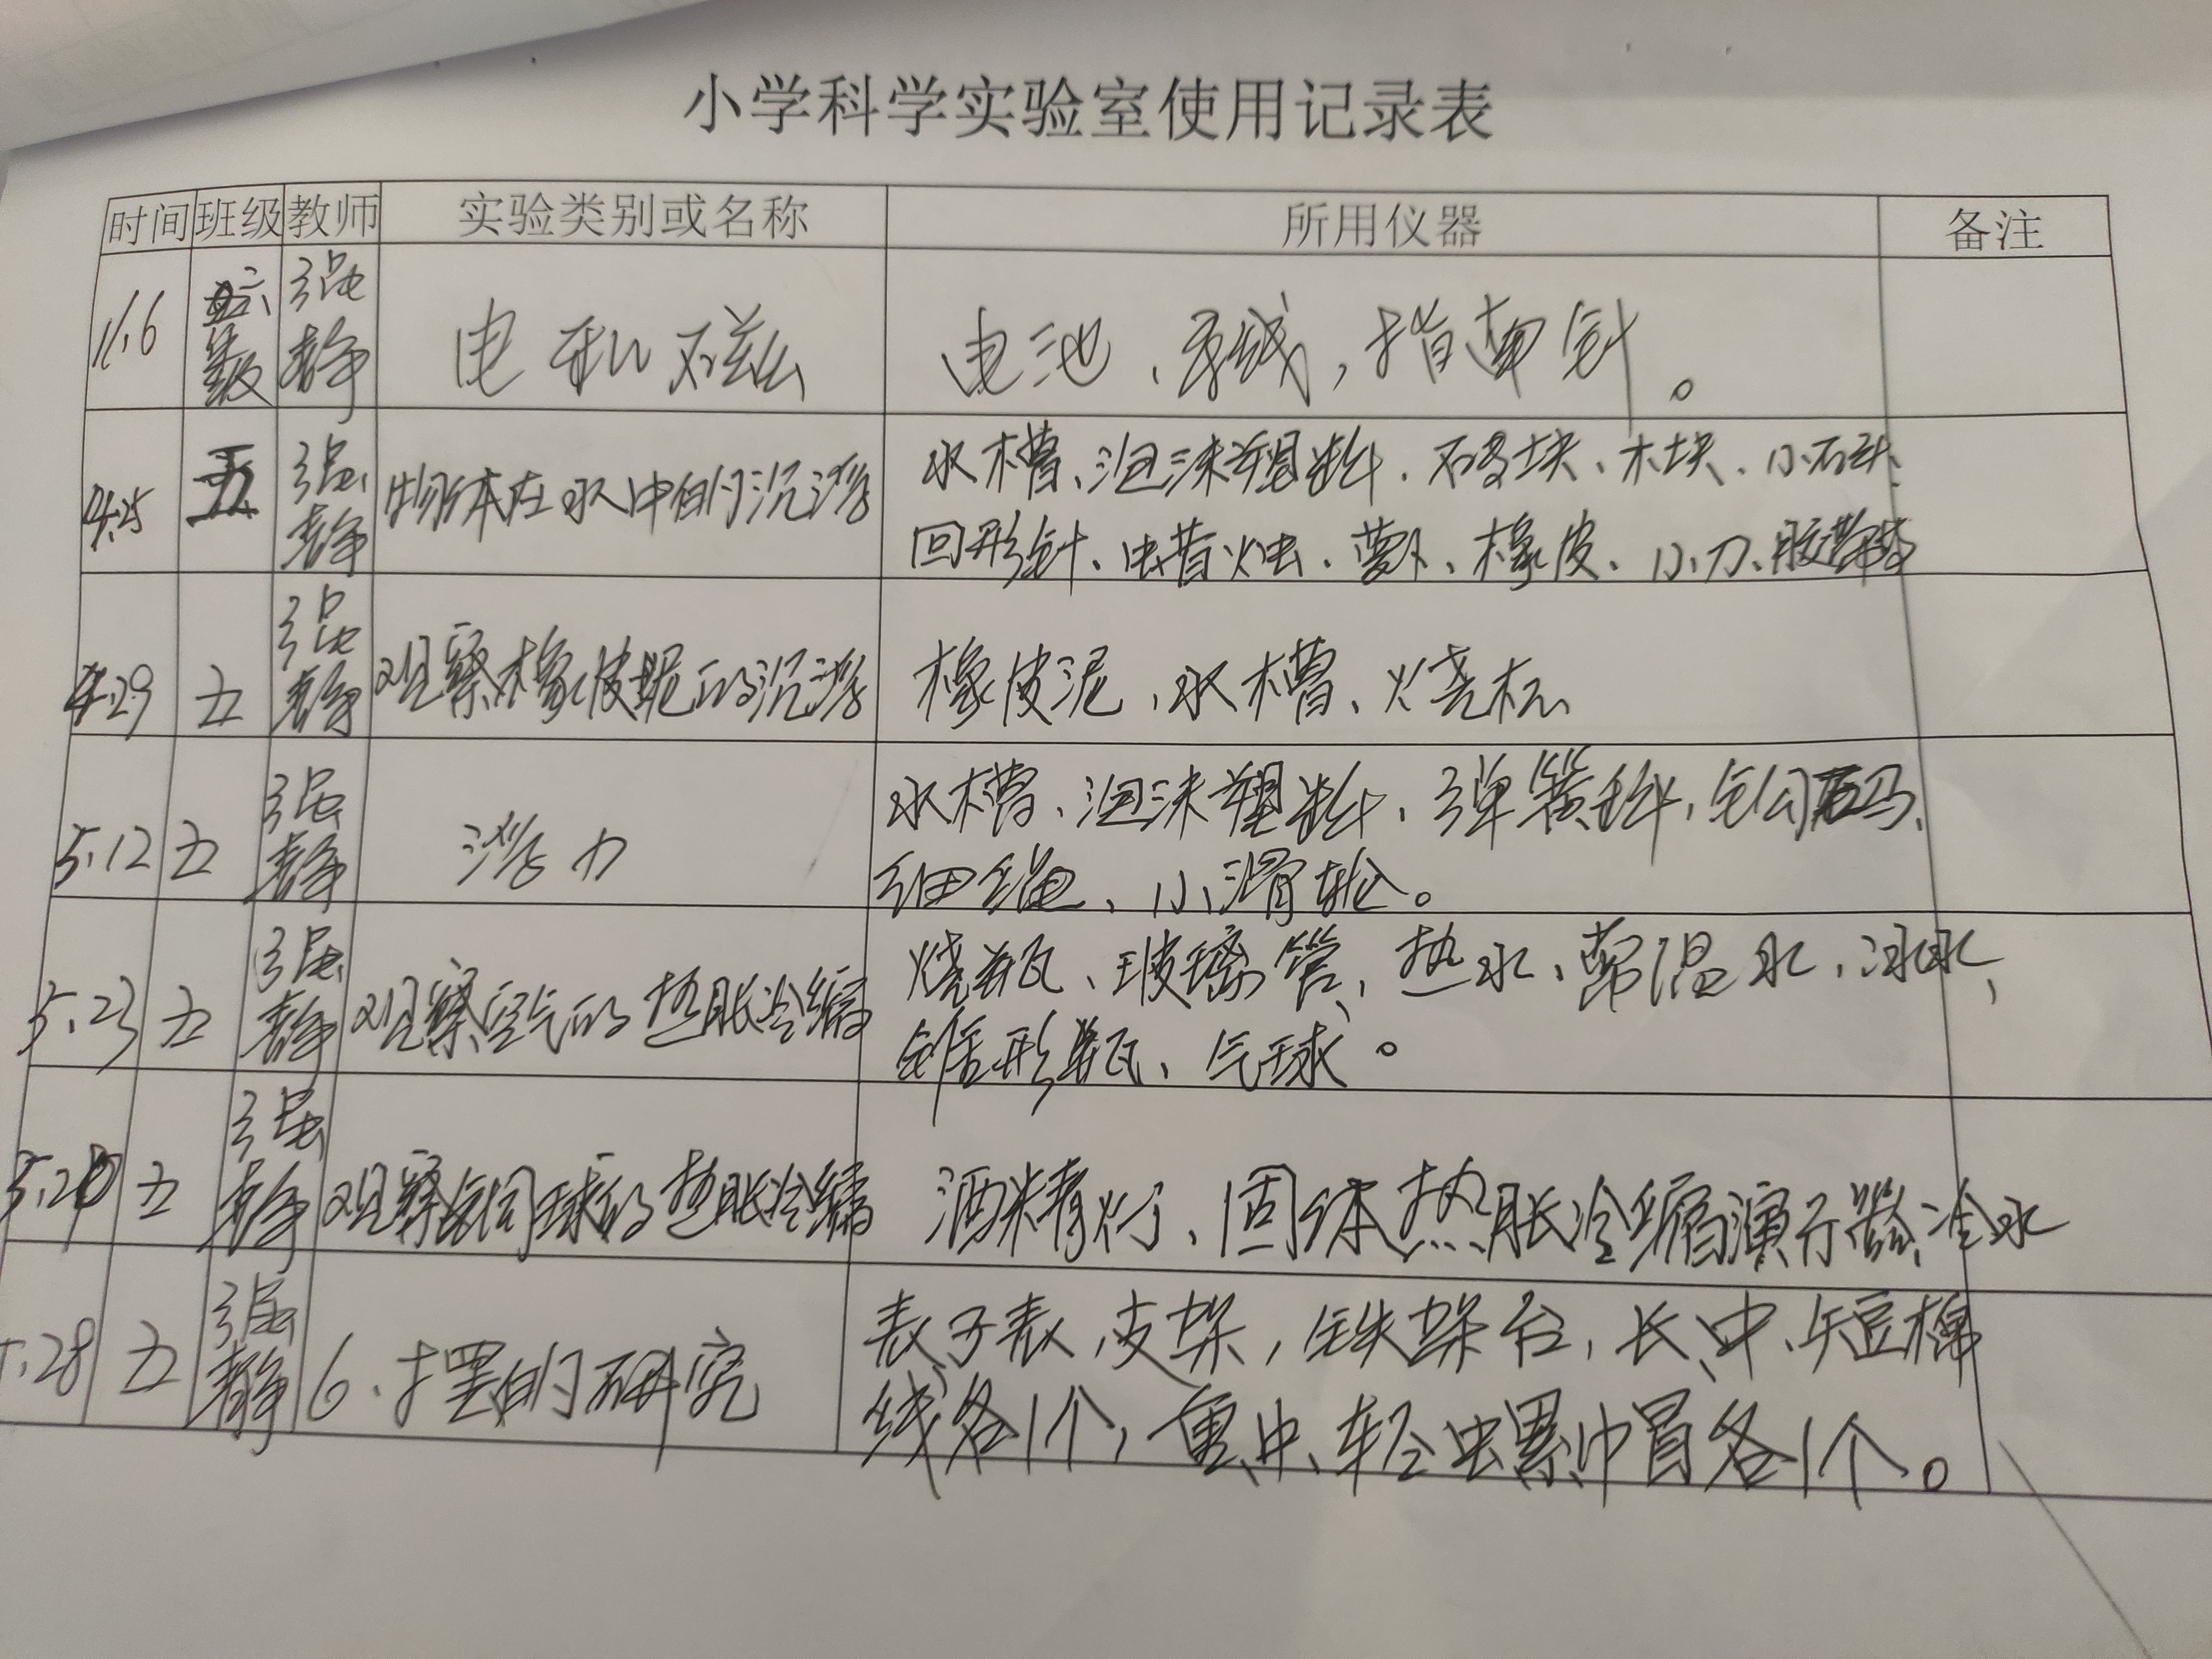 小学科学实验室使用记录表
时间 班级 教师 实验类别或名称 所用仪器 备注
11.6 六年级 强静 电和磁 电池、导线,指南针。
4.25 五 强静 物体在水中的沉浮 水槽、泡沫塑料、石块、木块、小石头、
回形针、蜡烛、萝卜、橡皮、小刀、胶带等
4.29 五 强静 观察橡皮泥的沉浮 橡皮泥、水槽、烧杯
5.12 五 强静 浮力 水槽、泡沫塑料、弹簧秤,钩码、
细绳、小滑轮。
5.23 五 强静 观察空气的热胀冷缩 烧瓶、玻璃管、热水、常温水、冰水、
锥形瓶、气球。
五 强静 观察铜球的热胀冷缩 酒精灯、固体热胀冷缩演示器、冷水
.28 五 强静 6、摆的研究 支架,铁架台,长、中、短棉
线各1个,重、中、轻螺帽各1个。